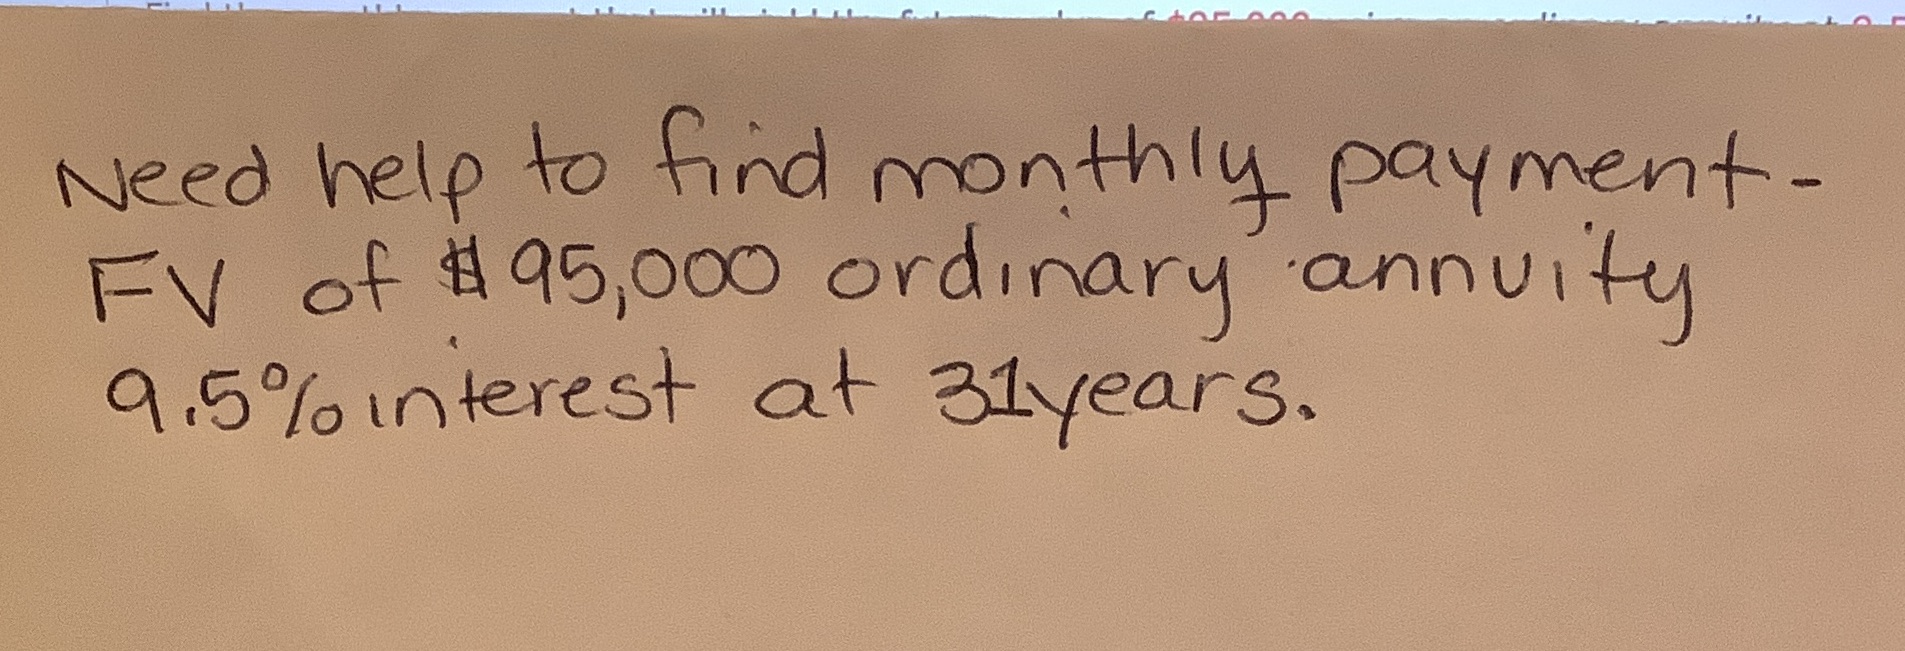 Need help to find monthly payment-
FV of $95,000 ordinary annuity
9.5% interest at 31years.